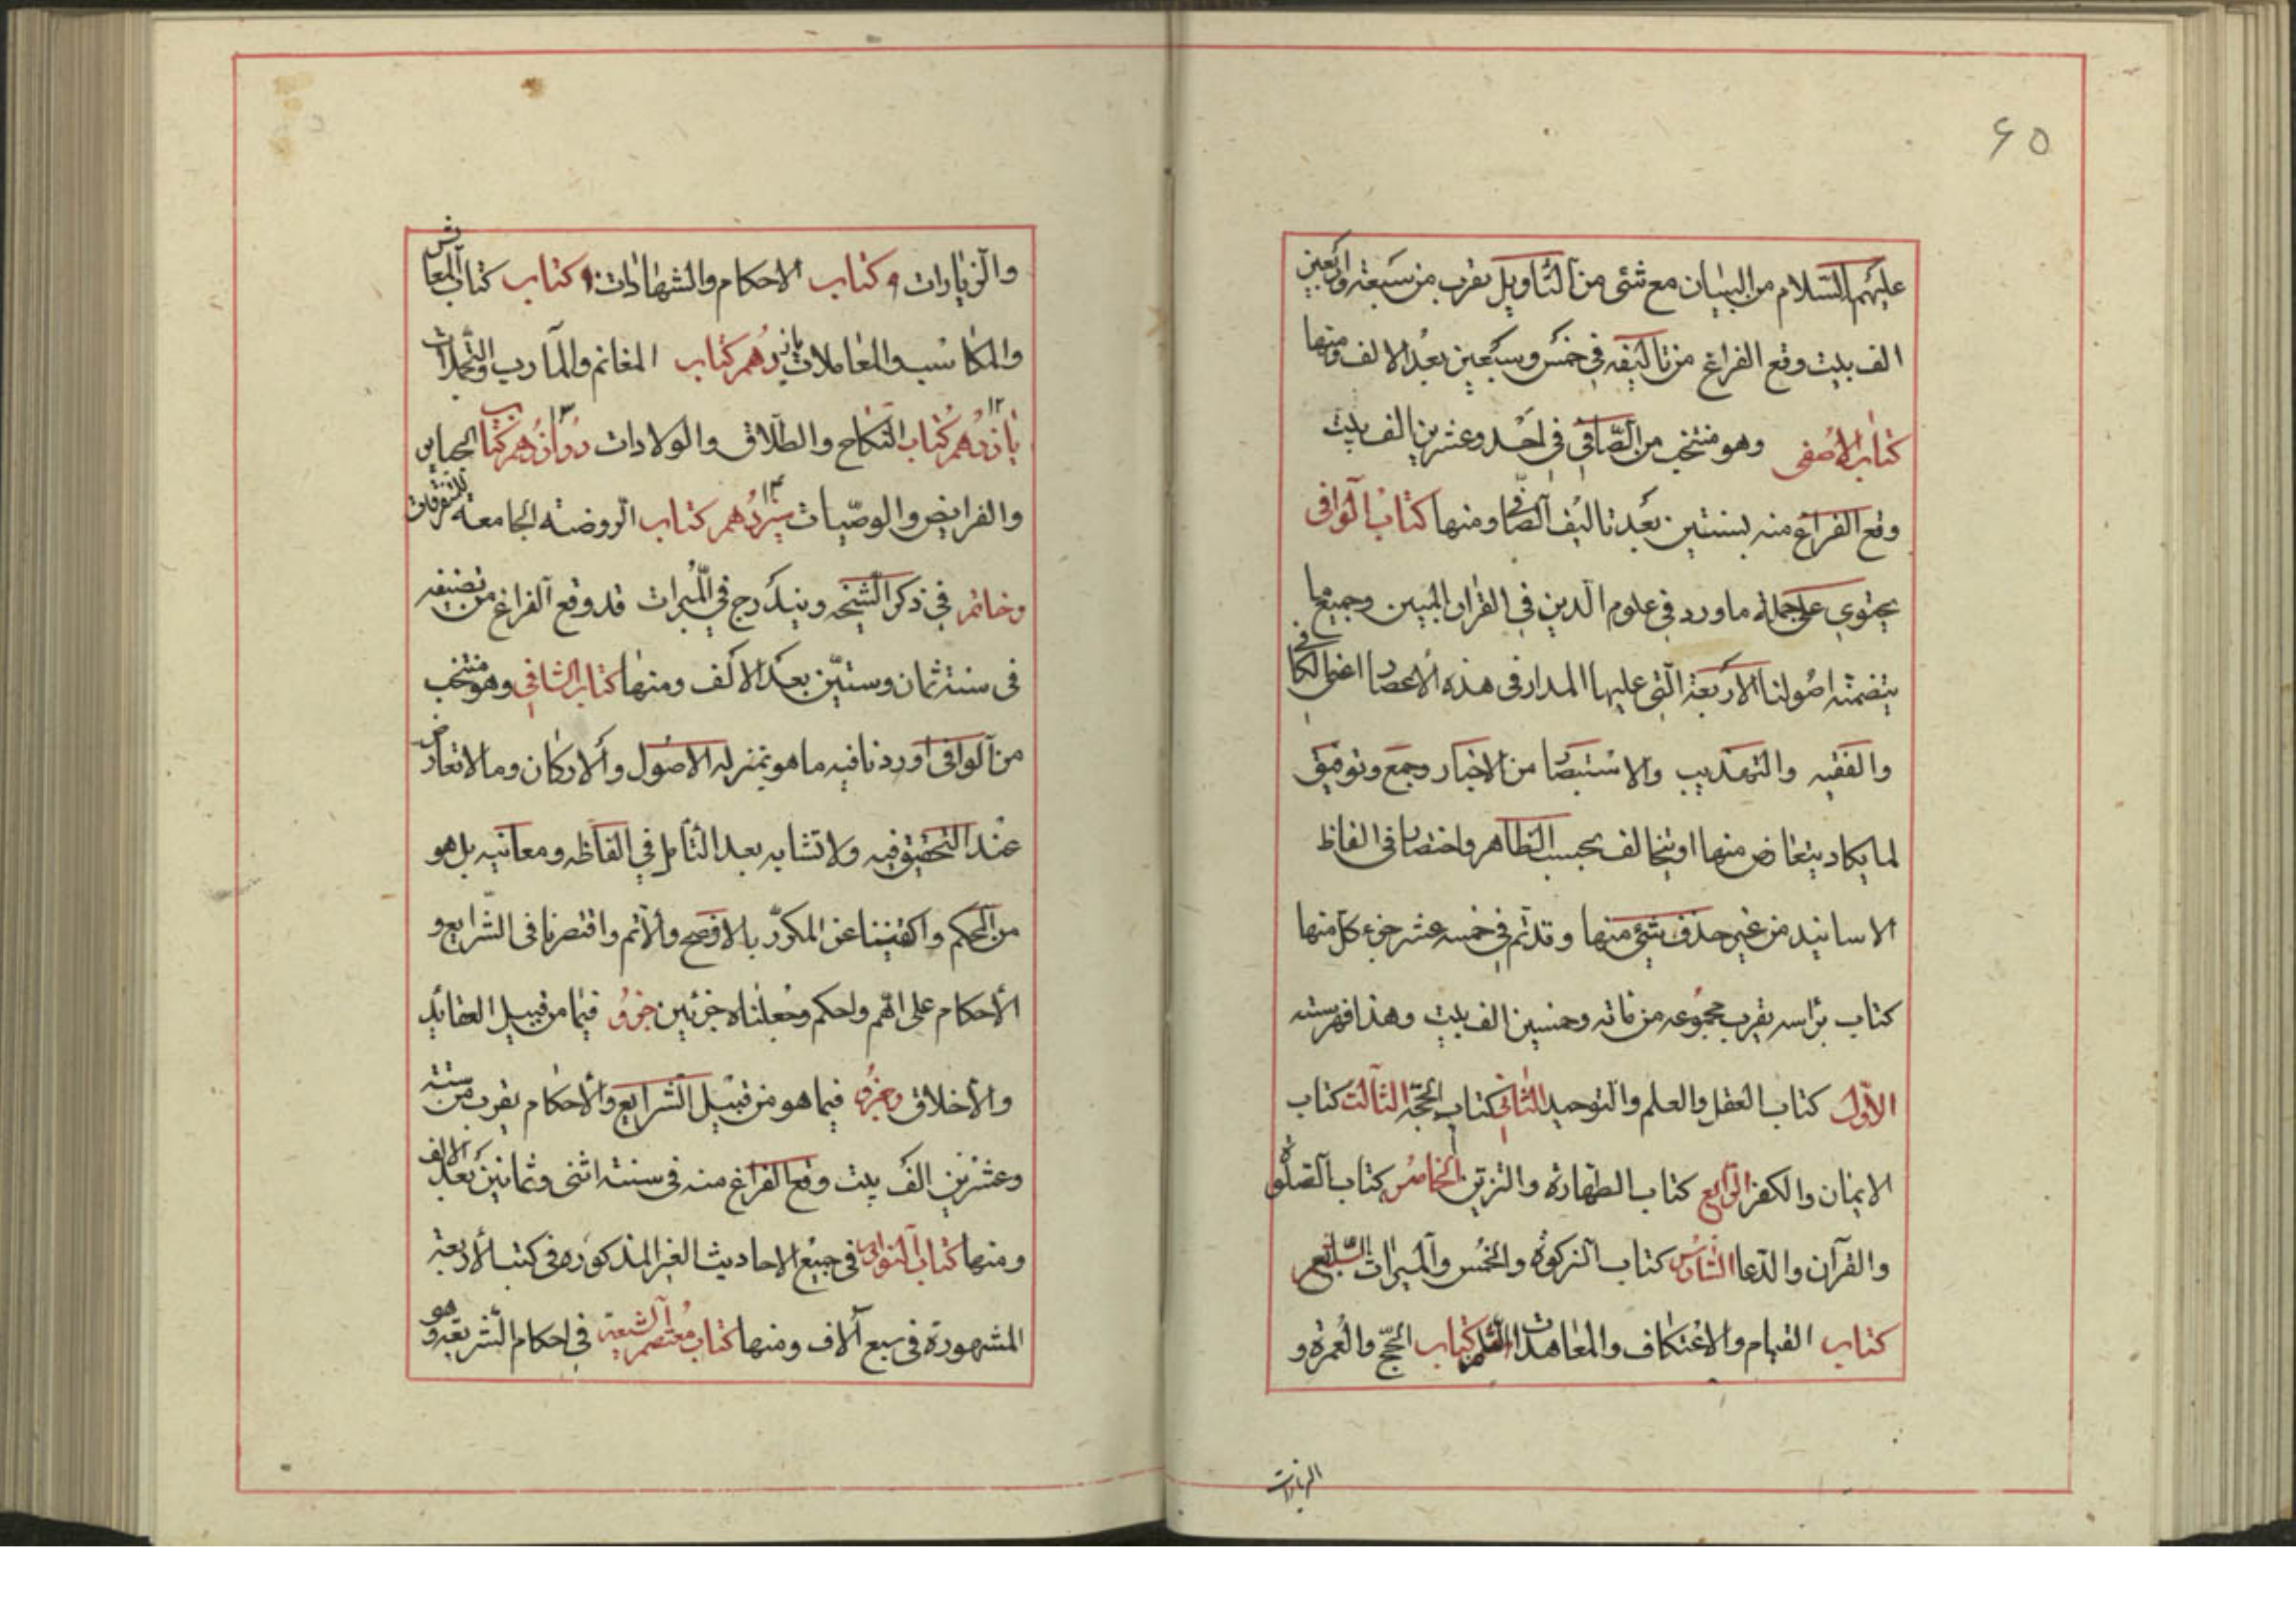 ۶۵
عليهم السّلام من البيان مع شئ من التّاويل يقرب من سبعة واربعين
الف بيت وقع الفراغ من تاليفه فى خمس وسبعين بعد الالف ومنها
كتاب الاصفى وهو منتخب من الصّافى فى احد وعشرين الف بيت
وقع الفراغ منه بسنتين بعد تاليف الصّافى ومنها كتاب الوافى
يحتوي على جملة ما ورد في علوم الدين في القران المبين وجميع ما
يتضمنه اصولنا الاربعة التى عليها المدار فى هذه الاعصار اعنى الكافى
والفقيه والتهذيب والاستبصار من الاخبار وجمع وتوفيق
لما يكاد يتعارض منها او يتخالف بحسب الظاهر واختصار فى الفاظ
الاسانيد من غير حذف شئ منها وقد تم في خمسه عشر جزء كل منها
كتاب براسه يقرب مجموعه من مائه وخمسين الف بيت وهذا فهرسته
الاوّل كتاب العقل والعلم والتوحيد الثانى كتاب الحجّة الثالث كتاب
الايمان والكفر الرّابع كتاب الطهارة والتزين الخامس كتاب الصّلوة
والقرآن والدّعا السّادس كتاب الزكوة والخمس والمبرات السّابع
كتاب الصيام والاعتكاف والمعاهدات الثامن كتاب الحجّ والعمرة و
الزيارات
والزيارات و كتاب الاحكام والشهادات و كتاب كتاب المعاش
والمكاسب والمعاملات يانزدهم كتاب المغانم والمآرب والتجملات
۱۲ يازدهم كتاب النكاح والطّلاق والولادات ۱۳ دوازدهم كتاب الجنايز
والفرايض والوصيّات ۱۴ سيزدهم كتاب الروضة الجامعه للمتفرقات
وخاتمه في ذكر المشيخه ويندرج في المبرات قد وقع الفراغ من تصنيفه
فى سنة ثمان وستّين بعد الالف ومنها كتاب الشافي وهو منتخب
من الوافى اوردنا فيه ما هو بمنزله الاصول والاركان وما لا تعارض
عند التحقيق فيه ولا تشابه بعد التأمل في الفاظه ومعانيه بل هو
من المحكم واكتفينا عن المكرّر بالافصح والاتم واقتصرنا فى الشّرايع و
الأحكام على الاهم والحكم وجعلناه جزئين جزؤ فيما من قبيل العقائد
والأخلاق وجزؤ فيما هو من قبيل الشرايع والأحكام يقرب من ستة
وعشرين الف بيت وقع الفراغ منه فى سنة اثنى وثمانين بعد الالف
ومنها كتاب النوادر فى جميع الاحاديث الغير المذكوره فى كتب الأربعة
المشهورة فى سبع آلاف ومنها كتاب معتصم الشيعة في احكام الشريعة وهو